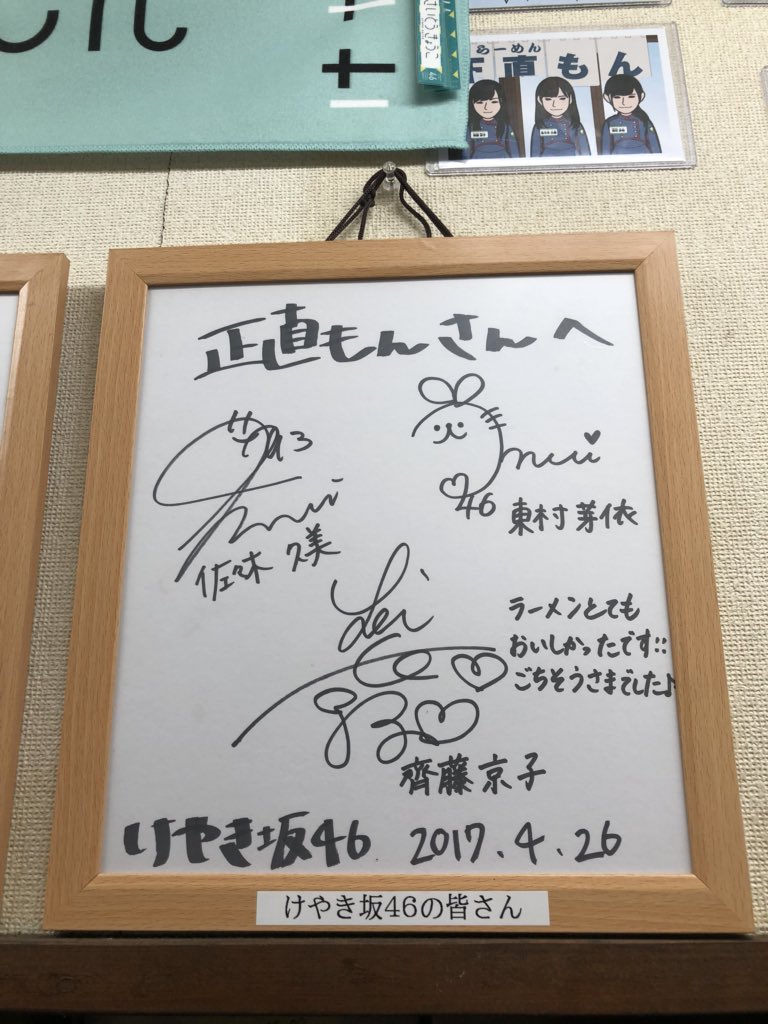 けや
さいとうきょうこ
46
らーめん
正直もん
正直もんさんへ
mei
46
東村芽依
佐々木久美
ラーメンとても
おいしかったです!!
ごちそうさまでした♪
齊藤京子
けやき坂46 2017.4.26
けやき坂46の皆さん